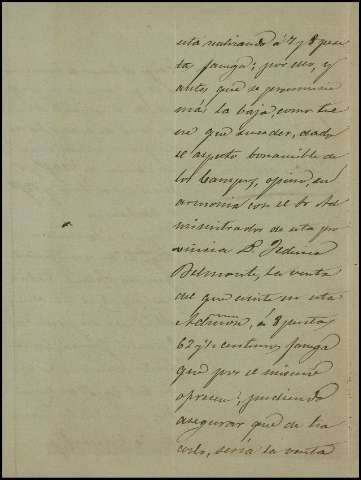 está realizando á 7 y 8 pese
ta fanega; por eso, y
antes que se pronuncie
más la baja, como tie
ne que suceder, dado
el aspecto bonancible de
los Campos, opino, en
armonia con el Sr Ad
ministrador de esta pro
vincia D. Federico
Belmonte, la venta
del que existe en esta
Admon, á 8 pesetas
62 y ½ centimos fanega
que por el mismo
ofrecen; pudiendo
asegurar que de ha
cerlo, sería la venta